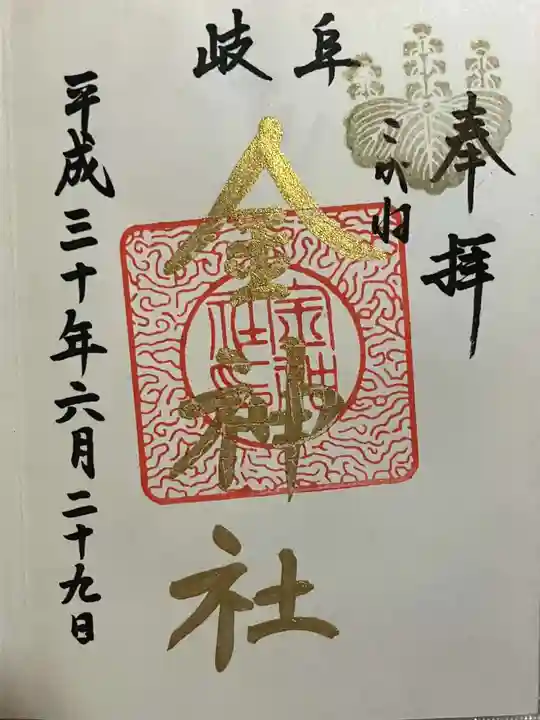 奉拝
三水旧
岐阜
金神社
平成三十年六月二十九日